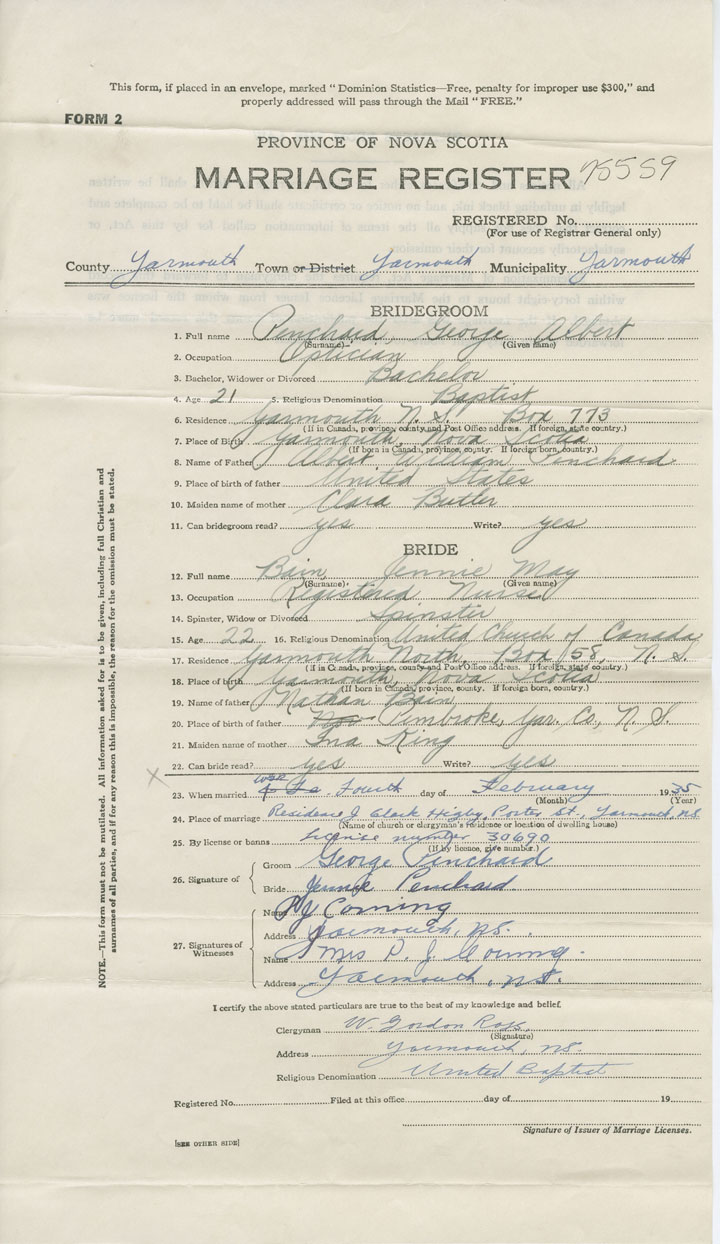 This form, if placed in an envelope, marked "Dominion Statistics—Free, penalty for improper use $300," and
properly addressed will pass through the Mail "FREE."
FORM 2
PROVINCE OF NOVA SCOTIA
MARRIAGE REGISTER 75559
REGISTERED No.
(For use of Registrar General only)
County Yarmouth Town or District Yarmouth Municipality Yarmouth
BRIDEGROOM
1. Full name Penchard, George Albert
(Surname) (Given name)
2. Occupation Optician
3. Bachelor, Widower or Divorced Bachelor
4. Age 21 5. Religious Denomination Baptist
6. Residence Yarmouth N.S. Box 773
(If in Canada, province, county and Post Office address. If foreign, state country.)
7. Place of Birth Yarmouth, Nova Scotia
(If born in Canada, province, county. If foreign born, country.)
8. Name of Father Albert William Penchard
9. Place of birth of father United States
10. Maiden name of mother Clara Butler
11. Can bridegroom read? yes Write? yes
BRIDE
12. Full name Bain, Jennie May
(Surname) (Given name)
13. Occupation Registered Nurse
14. Spinster, Widow or Divorced Spinster
15. Age 22 16. Religious Denomination United Church of Canada
17. Residence Yarmouth North, Box 158, N.S.
(If in Canada, province, county and Post Office address. If foreign, state country.)
18. Place of birth Yarmouth, Nova Scotia
(If born in Canada, province, county. If foreign born, country.)
19. Name of father Nathan Bain
20. Place of birth of father Pembroke, Yar. Co, N.S.
21. Maiden name of mother Ina King
22. Can bride read? yes Write? yes
23. When married Fourth day of February 1935
(Month) (Year)
24. Place of marriage Residence J Clark Higby, Porter St., Yarmouth, NS
(Name of church or clergyman's residence or location of dwelling house)
25. By license or banns licence number 30690
(If by license, give number.)
26. Signature of Groom George Penchard
Bride Jennie Penchard
27. Signatures of Witnesses
Name Corning
Address Yarmouth, NS.
Name Mrs D. J. Corning
Address Yarmouth, N.S.
I certify the above stated particulars are true to the best of my knowledge and belief.
Clergyman W. Gordon Ross
(Signature)
Address Yarmouth, NS
Religious Denomination United Baptist
Registered No. Filed at this office day of 19
Signature of Issuer of Marriage Licenses.
[SEE OTHER SIDE]
NOTE.—This form must not be mutilated. All information asked for is to be given, including full Christian and
surnames of all parties, and if for any reason this is impossible, the reason for the omission must be stated.